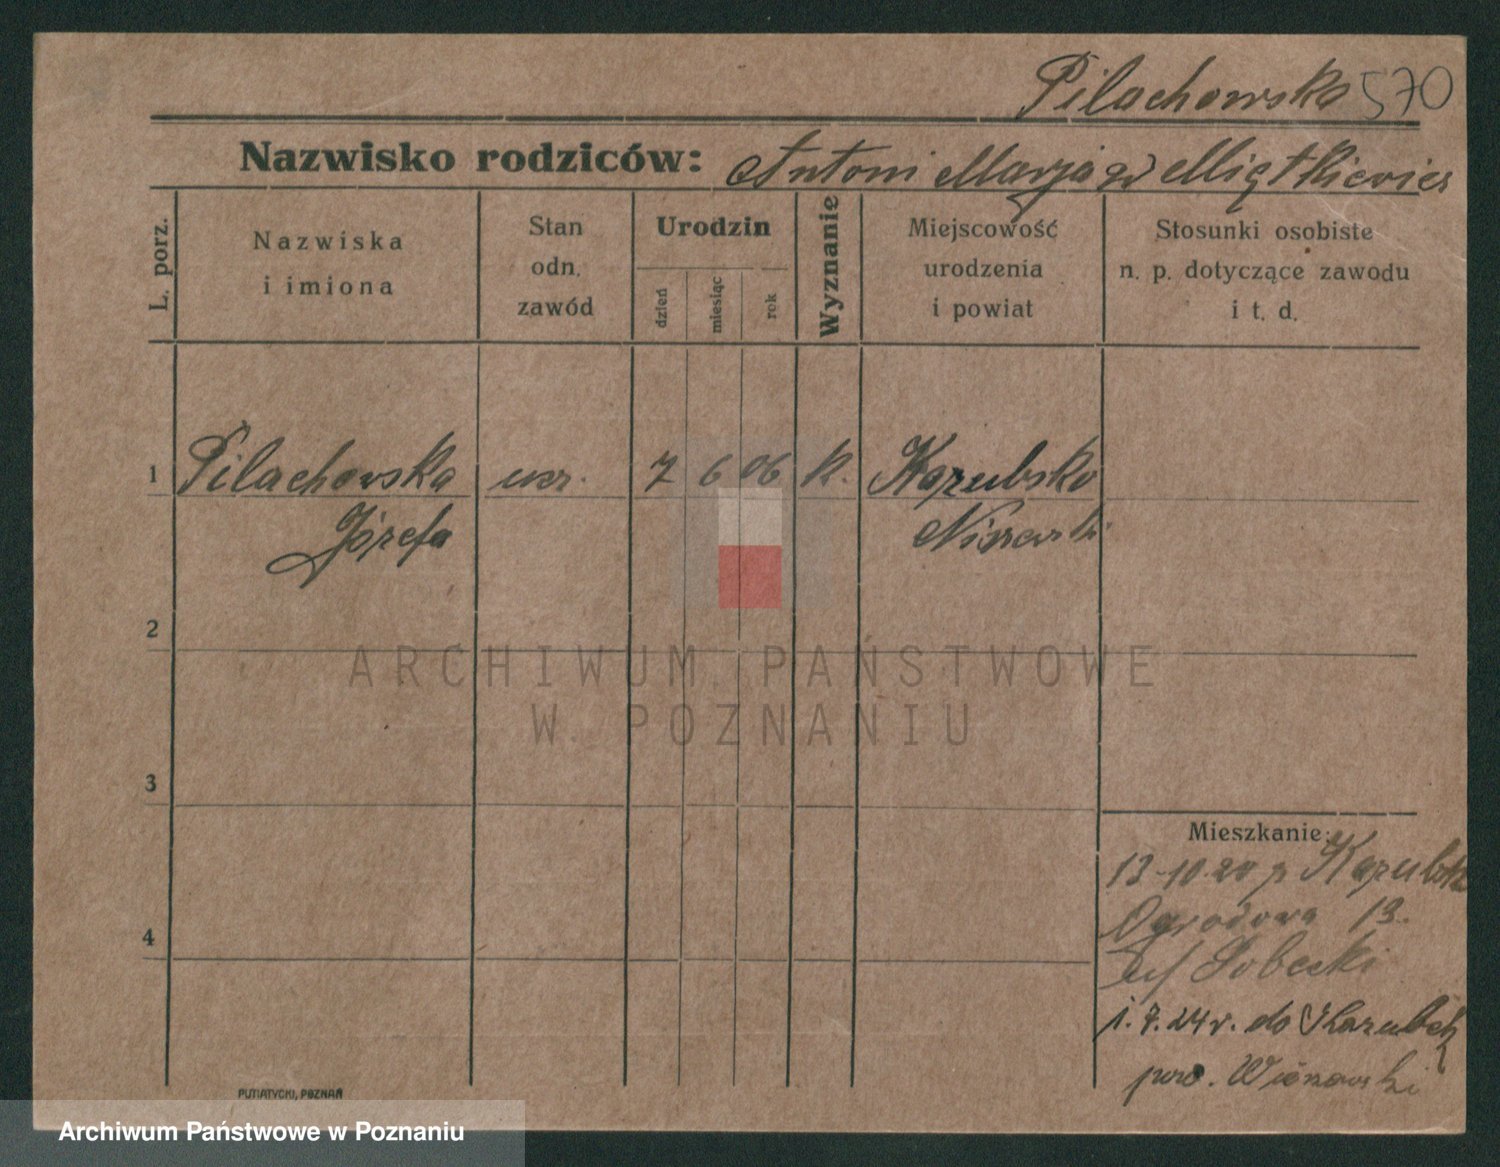 Pilachowska 570
Nazwisko rodziców: Antoni Marja
L. porz.
Nazwiska
i imiona
Stan
odn.
zawód
Urodzin
dzień
miesiąc
rok
Wyznanie
Miejscowość
urodzenia
i powiat
Stosunki osobiste
n. p. dotyczące zawodu
i t. d.
1 Pilachowska ucz. 7 6 06 k.
Józefa
2
ARCHIWUM PAŃSTWOWE
W POZNANIU
3
Mieszkanie:
13-10-20
Ogrodowa 13.
4
Sobecki
1.7.24 r. do
pow.
PUTIATYCKI, POZNAŃ
Archiwum Państwowe w Poznaniu